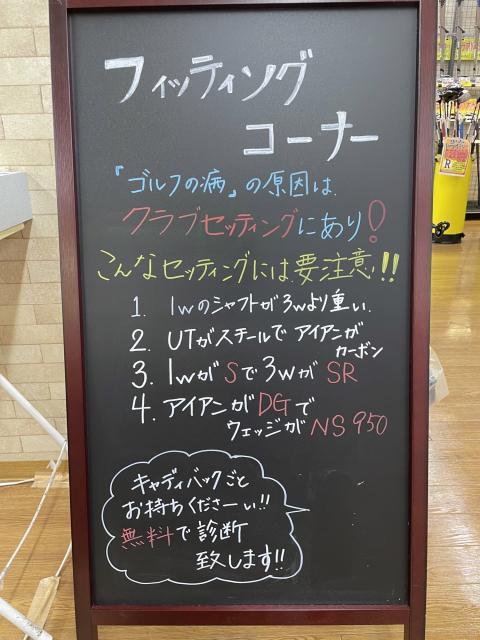 フィッティング
コーナー
『ゴルフの病』の原因は
クラブセッティングにあり!
こんなセッティングには要注意!!
1. 1wのシャフトが3wより重い.
2. UTがスチールでアイアンが
カーボン
3. 1wがSで3wがSR
4. アイアンがDGで
ウェッジがNS950
キャディバックごと
お持ちくださーい!!
無料で診断
致します!!